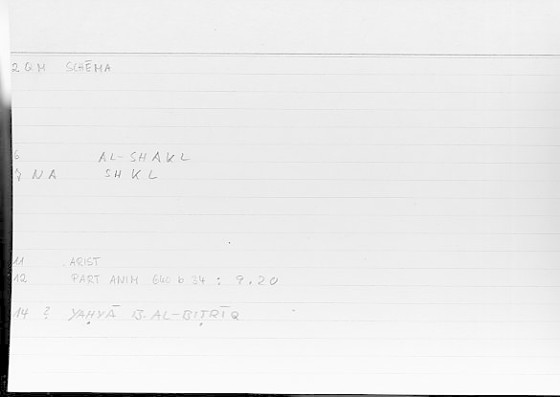 2 QM SCHĒMA
6 AL-SHAKL
7 NA SHKL
11 ARIST
12 PART ANIM 640 b 34 : 9.20
14 ? YAḤYĀ B. AL-BIṬRĪQ